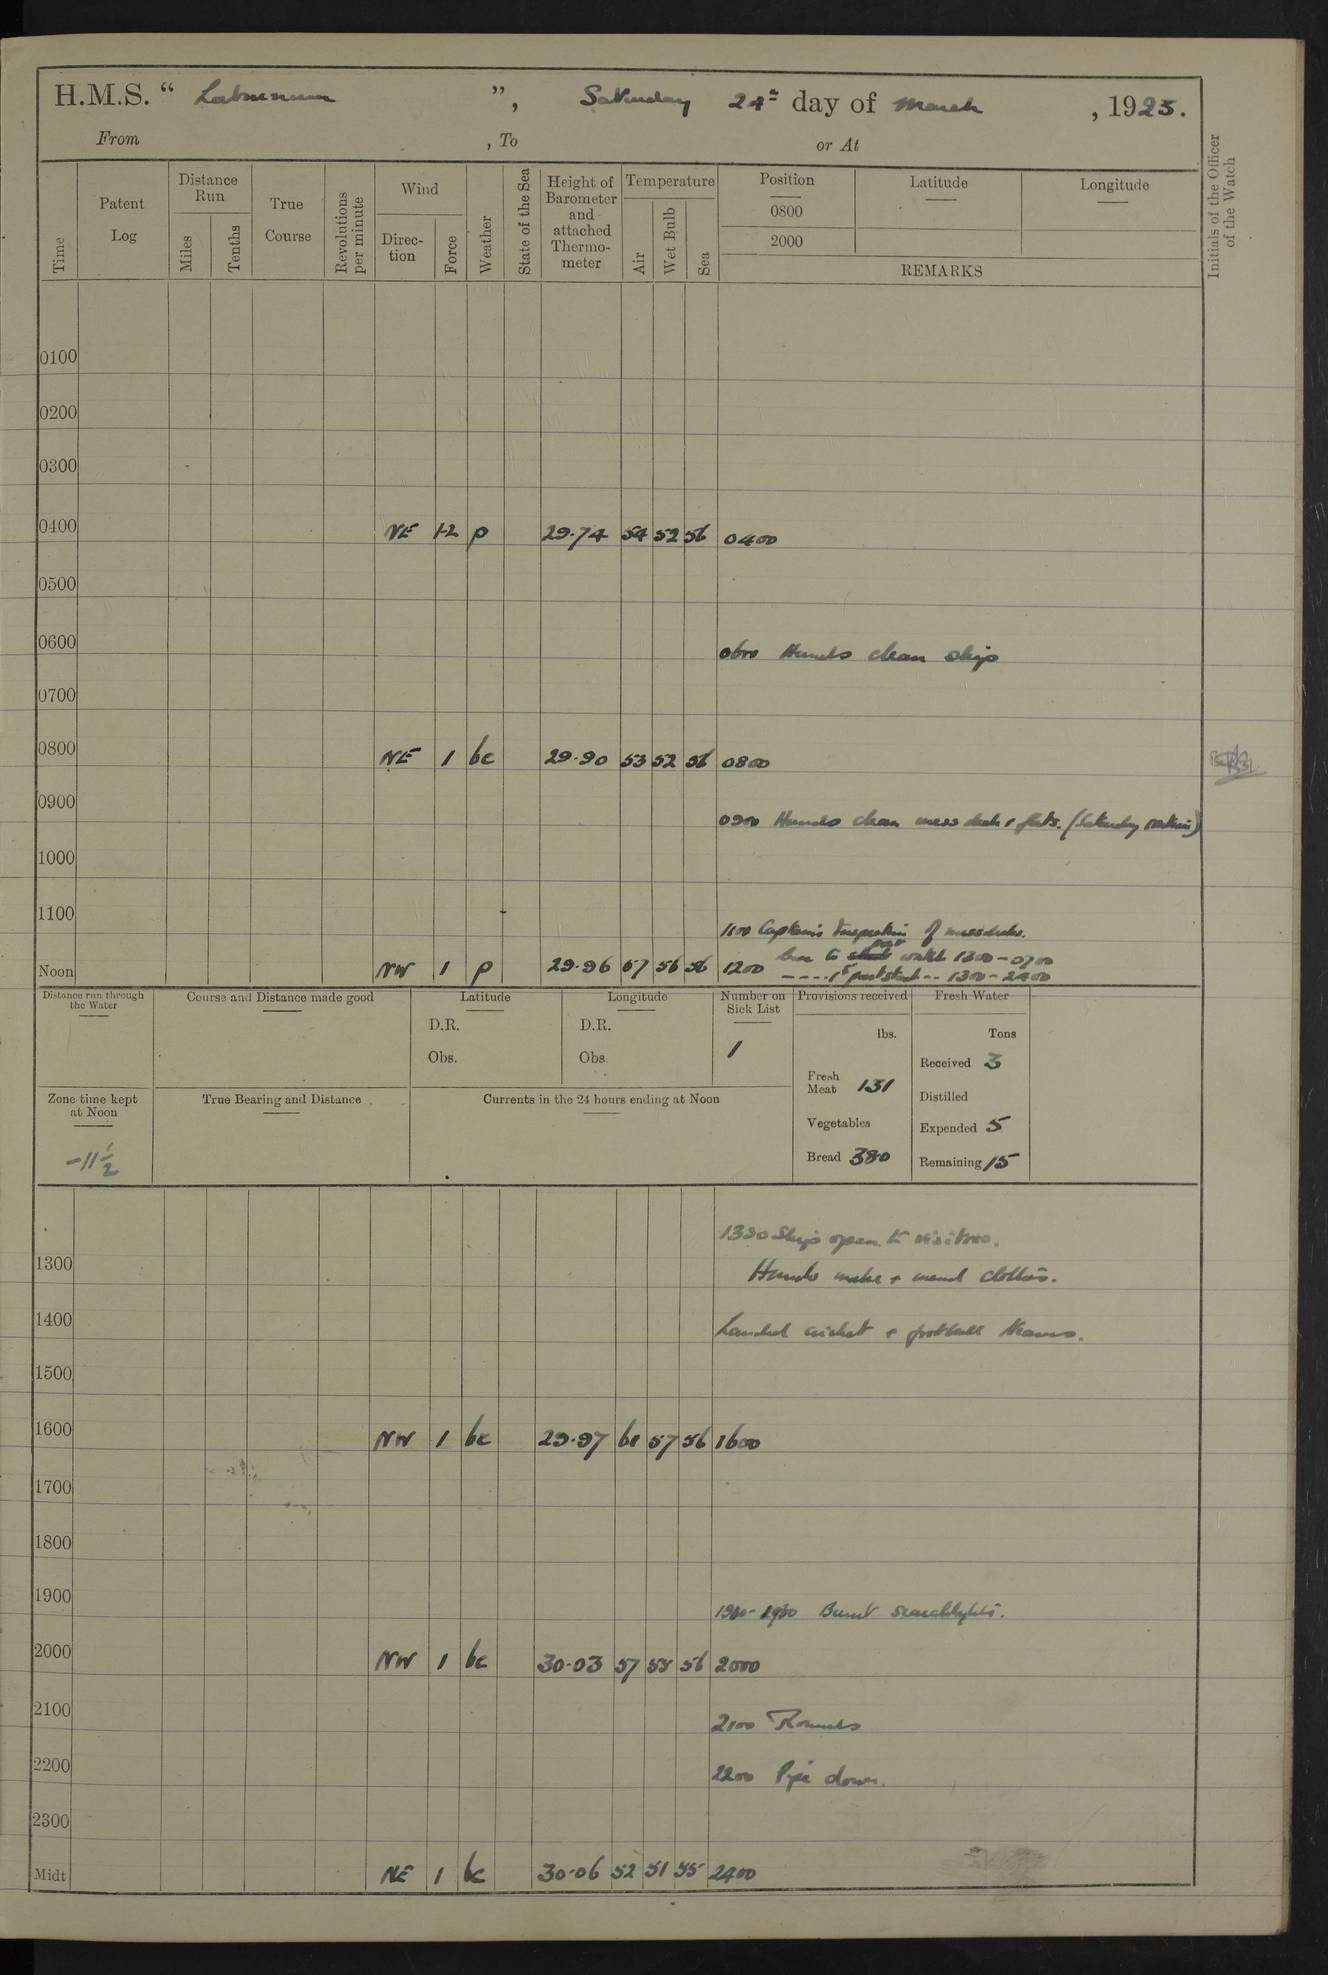 H.M.S. “ Laburnum ”, Saturday 24th day of March , 1923.
From , To or At
Time Patent Log Distance Run Miles Tenths True Course Revolutions per minute Wind Direc- tion Force Weather State of the Sea Height of Barometer and attached Thermo- meter Temperature Air Wet Bulb Sea Position 0800 2000 Latitude Longitude REMARKS Initials of the Officer of the Watch
0100
0200
0300
0400 NE 1-2 p 29.74 54 52 56 0400
0500
0600 0600 Hands clean ship
0700
0800 NE 1 bc 29.90 53 52 56 0800
0900 0900 Hands clean mess deck & flats. (Saturday routine)
1000
1100 1100 Captains Inspection of messdecks.
Leave to port watch 1300 - 0700
Noon NW 1 p 29.96 57 56 56 1200 - - - - 1st part stbd - - 1300 - 2400
Distance run through the Water Course and Distance made good Latitude Longitude Number on Sick List Provisions received Fresh Water
D.R. D.R. lbs. Tons
Obs. Obs. 1 Received 3
Fresh Meat 131
Distilled
Zone time kept at Noon True Bearing and Distance Currents in the 24 hours ending at Noon
Vegetables Expended 5
-11 1/2 Bread 380 Remaining 15
1330 Ship open to visitors.
1300 Hands make & mend clothes.
1400 Landed cricket & football teams.
1500
1600 NW 1 bc 29.97 61 57 56 1600
1700
1800
1900 1930 Burnt searchlights.
2000 NW 1 bc 30.03 57 55 56 2000
2100 2100 Rounds
2200 2200 Pipe down.
2300
Midt NE 1 bc 30.06 52 51 55 2400